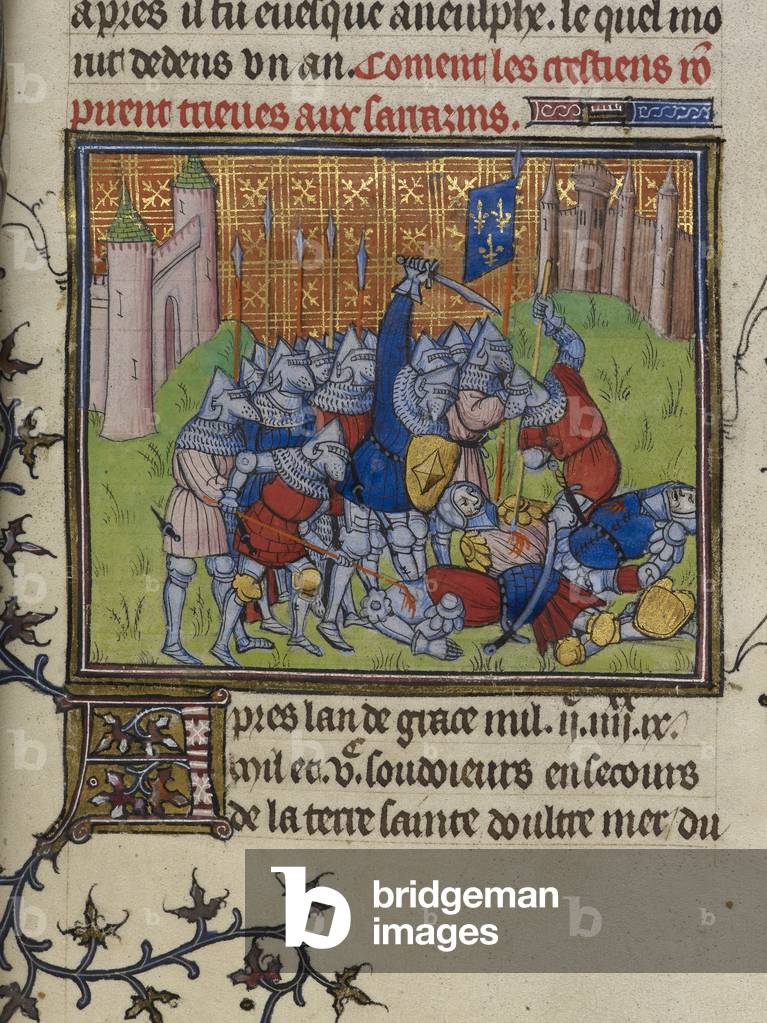 apres il fu euesque aneulphe. le quel mo
rut dedens vn an. Coment les crestiens rō
pirent trieues aux sarrazins.
Apres lan de grace mil. ijᶜ. iiijˣˣ. ix.
Mil et. vᶜ. soudoieurs en secours
de la terre sainte doultre mer / du
bridgeman
images